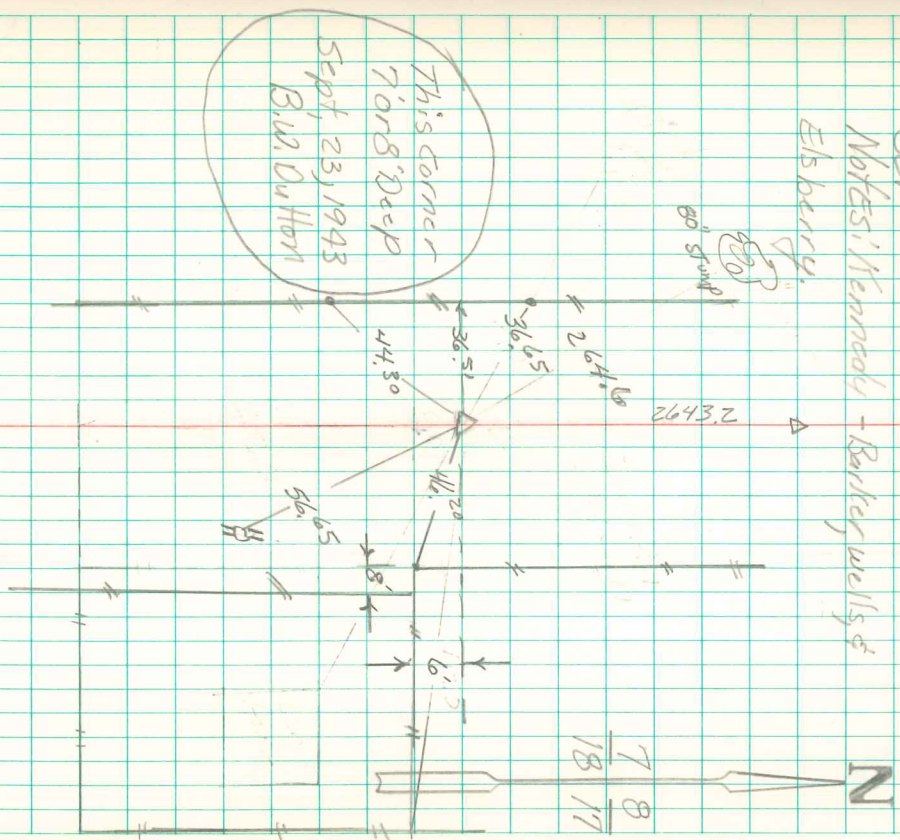 Notes: Kennedy - Barker, Wells, &
Elsberry.
60" Stump
This Corner
7 or 8" Deep
Sept, 23, 1943
B.W. Dutton
2641.6
2643.2
36.65
36.51
44.30
46.20
56.65
8'
6'.5
7 8
18 17
N